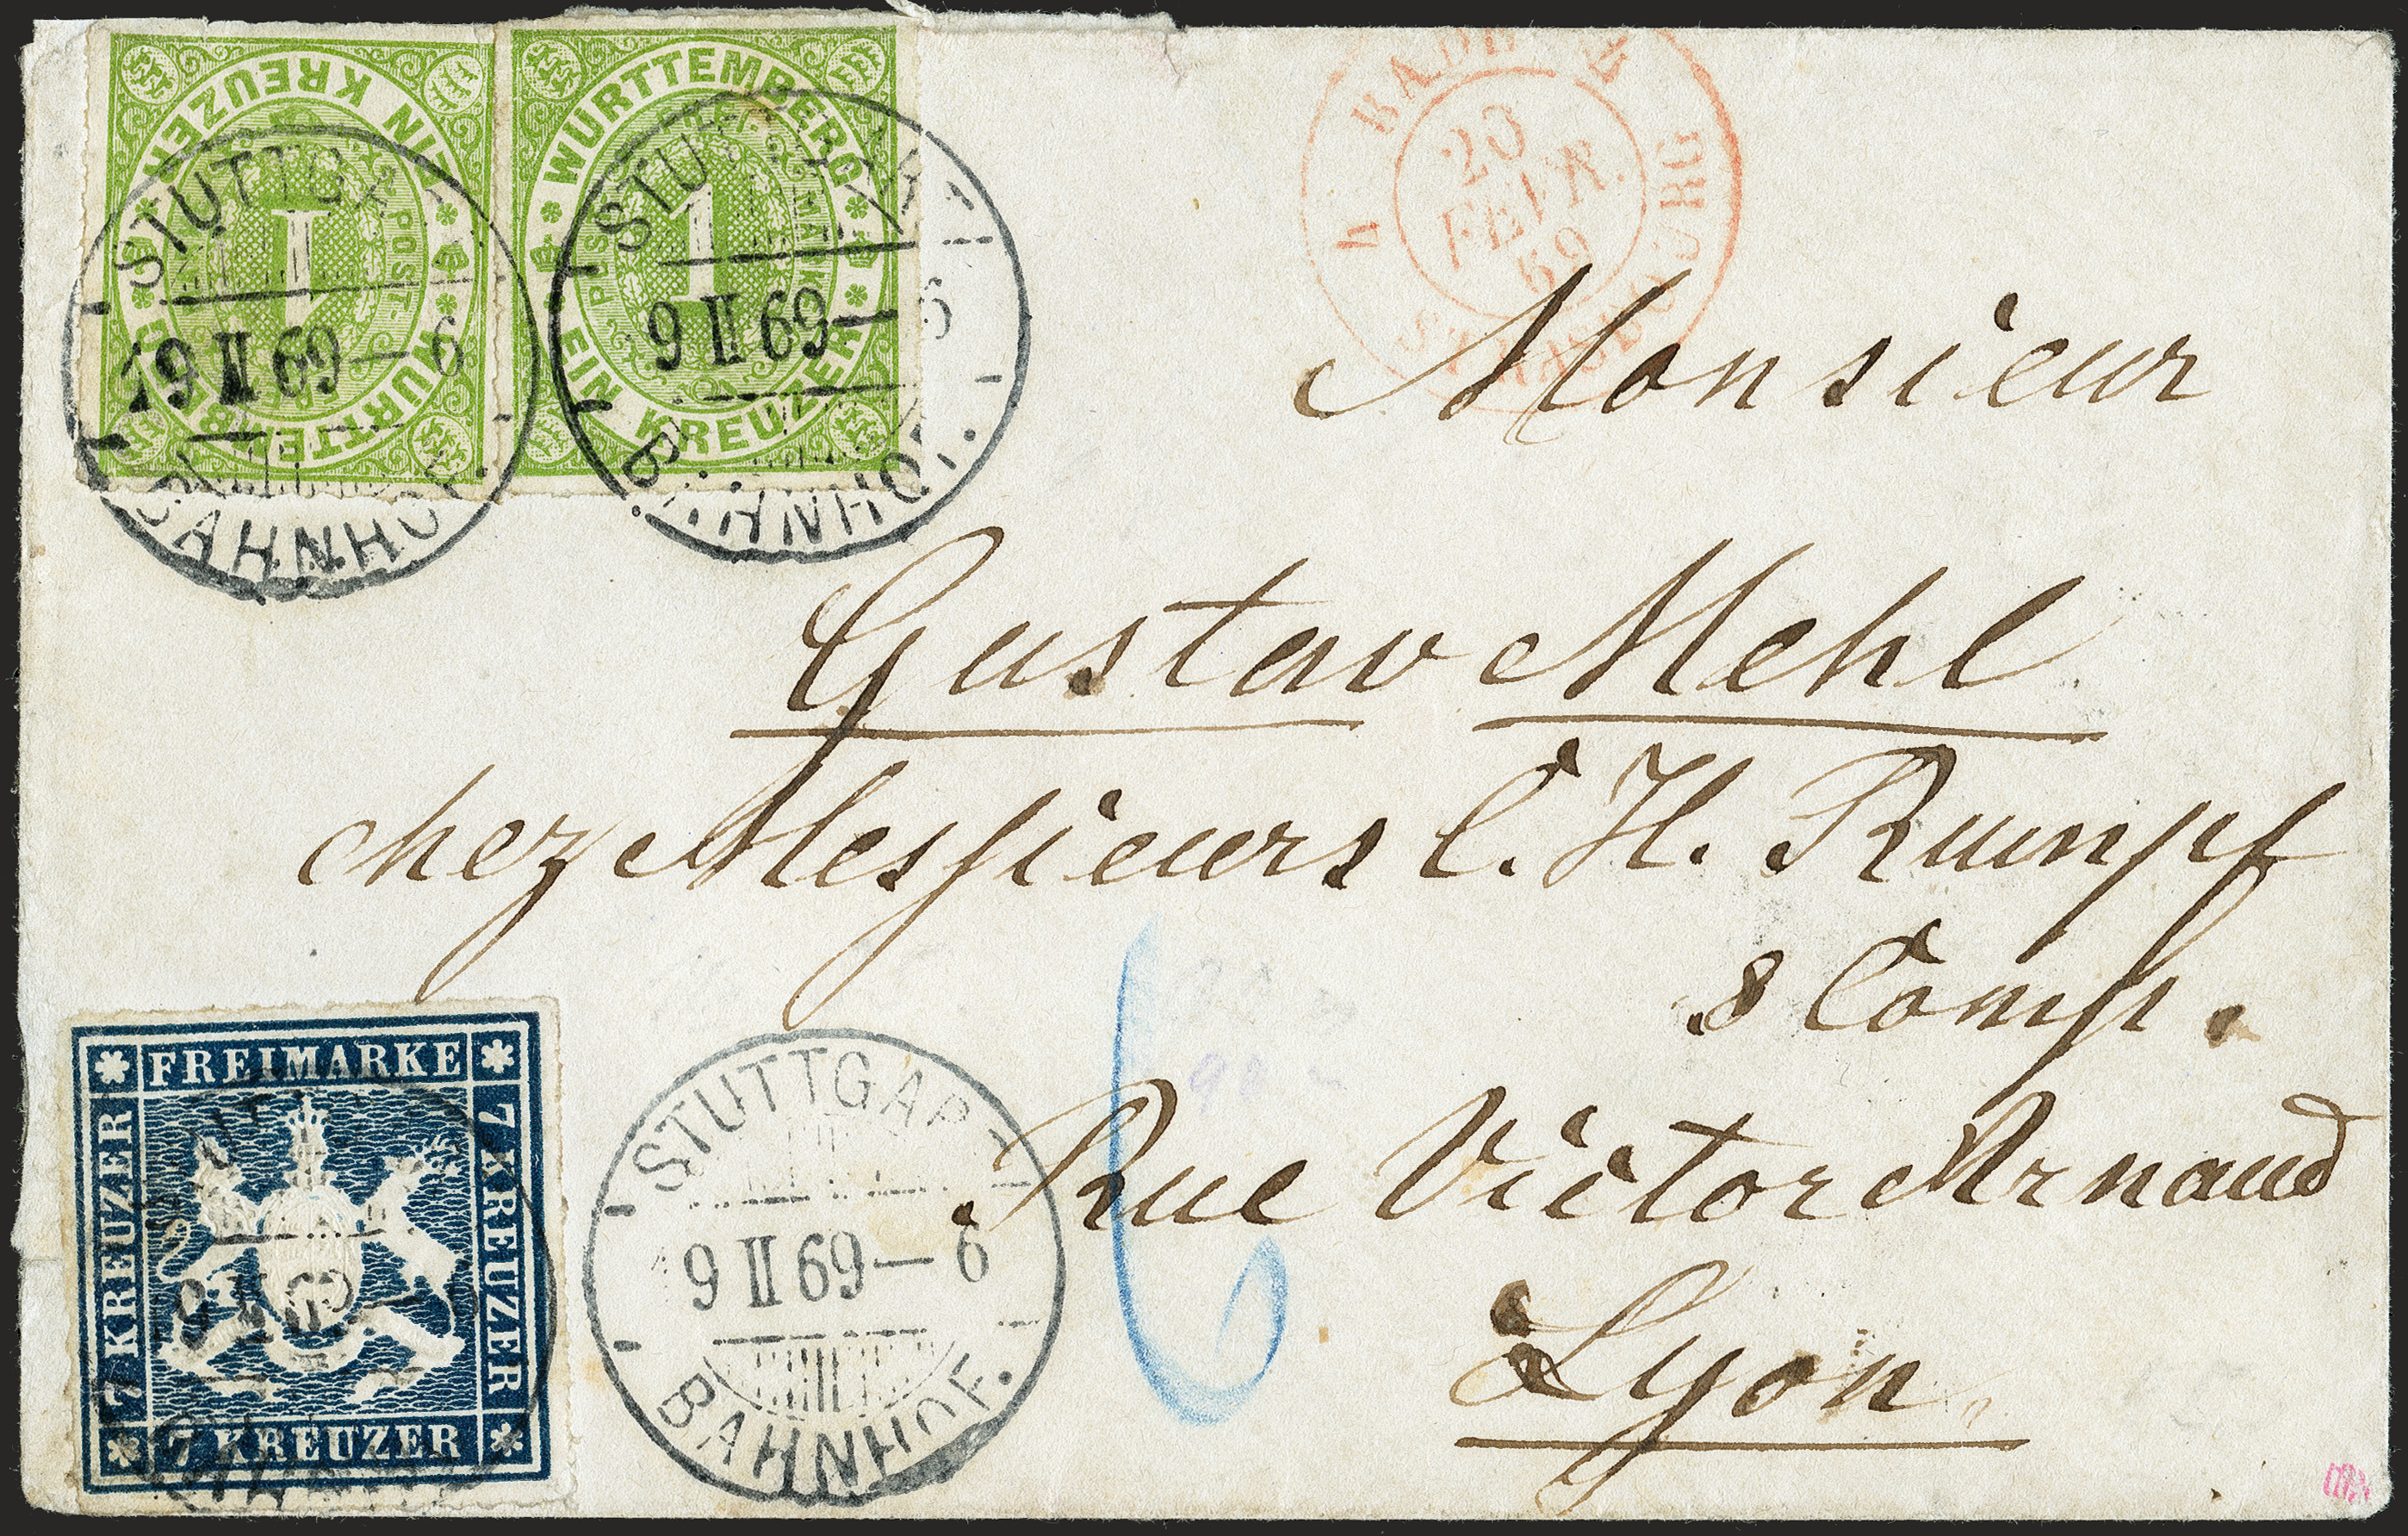 EIN KREUZER
WÜRTTEMBERG
POST-
1
WÜRTTEMBERG
EIN KREUZER
POST
MARKE
1
STUTTGAR
19 II 69-6
BAHNHOF.
STUTTGART
9 II 69-6
BAHNHOF.
BADE
20
FEVR.
69
STRASBOURG
Monsieur
Gustav Mehl
chez Messieurs C. H. Rumpf
& Comp.
Rue Victor Arnaud
Lyon
6
FREIMARKE
7 KREUZER
7 KREUZER
7 KREUZER
9 II 69
STUTTGAR
9 II 69-6
BAHNHOF.